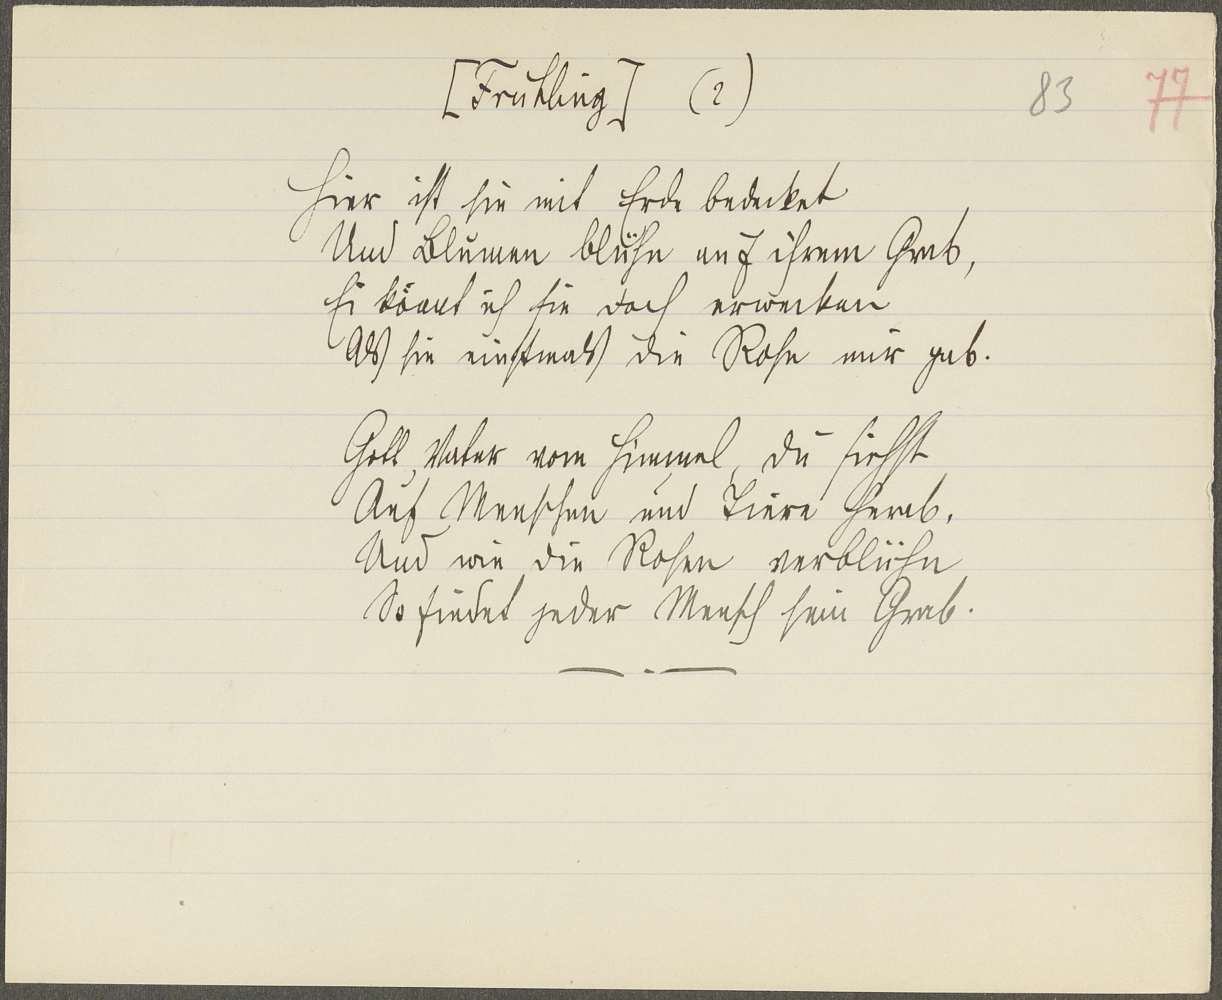 [Frühling] (2) 83 77
Hier ist sie mit Erde bedecket
Und Blumen blühn auf ihrem Grab,
Ei könnt ich sie doch erwecken
Als sie einstmals die Rose mir gab.
Gott Vater vom Himmel, du siehst
Auf Menschen und Tiere herab,
Und wie die Rosen verblühn
So findet jeder Mensch sein Grab.